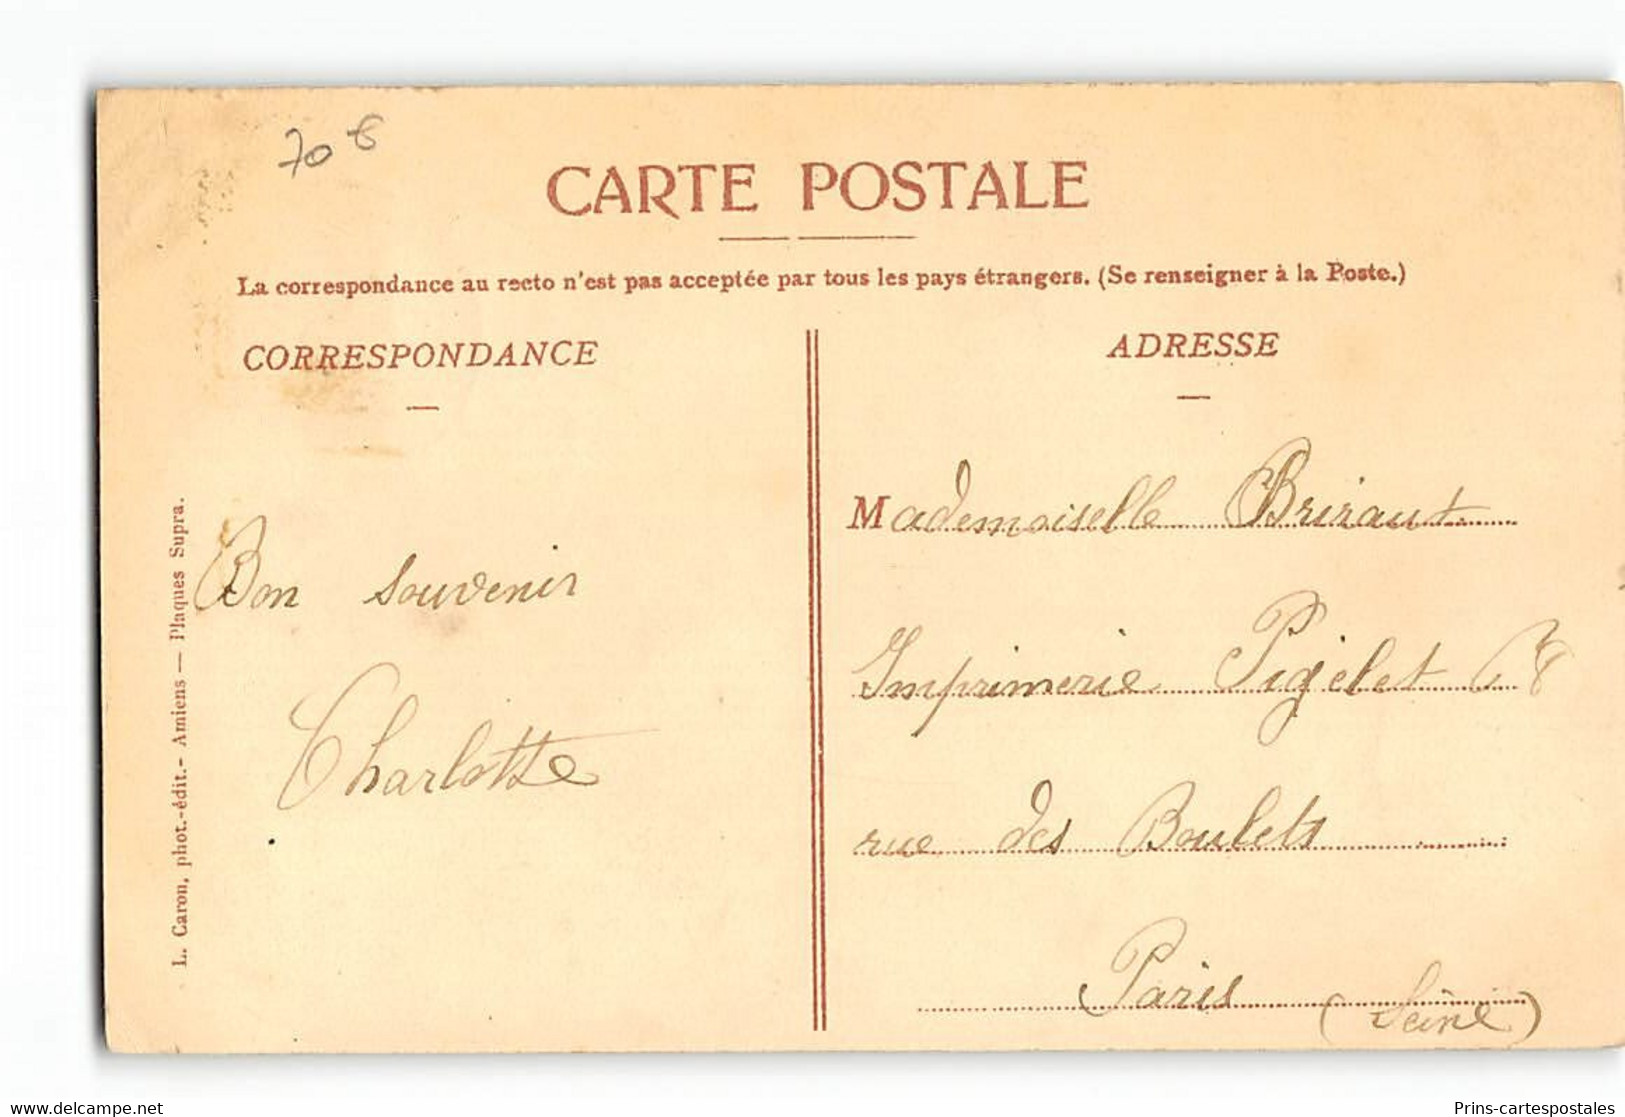 70 €
CARTE POSTALE
La correspondance au recto n'est pas acceptée par tous les pays étrangers. (Se renseigner à la Poste.)
CORRESPONDANCE
ADRESSE
L. Caron, phot.-édit.- Amiens — Plaques Supra.
Bon souvenir
Charlotte
Mademoiselle
Imprimerie Pigelet
rue des Boulets
Paris
(Seine)
www.delcampe.net
Prins-cartespostales